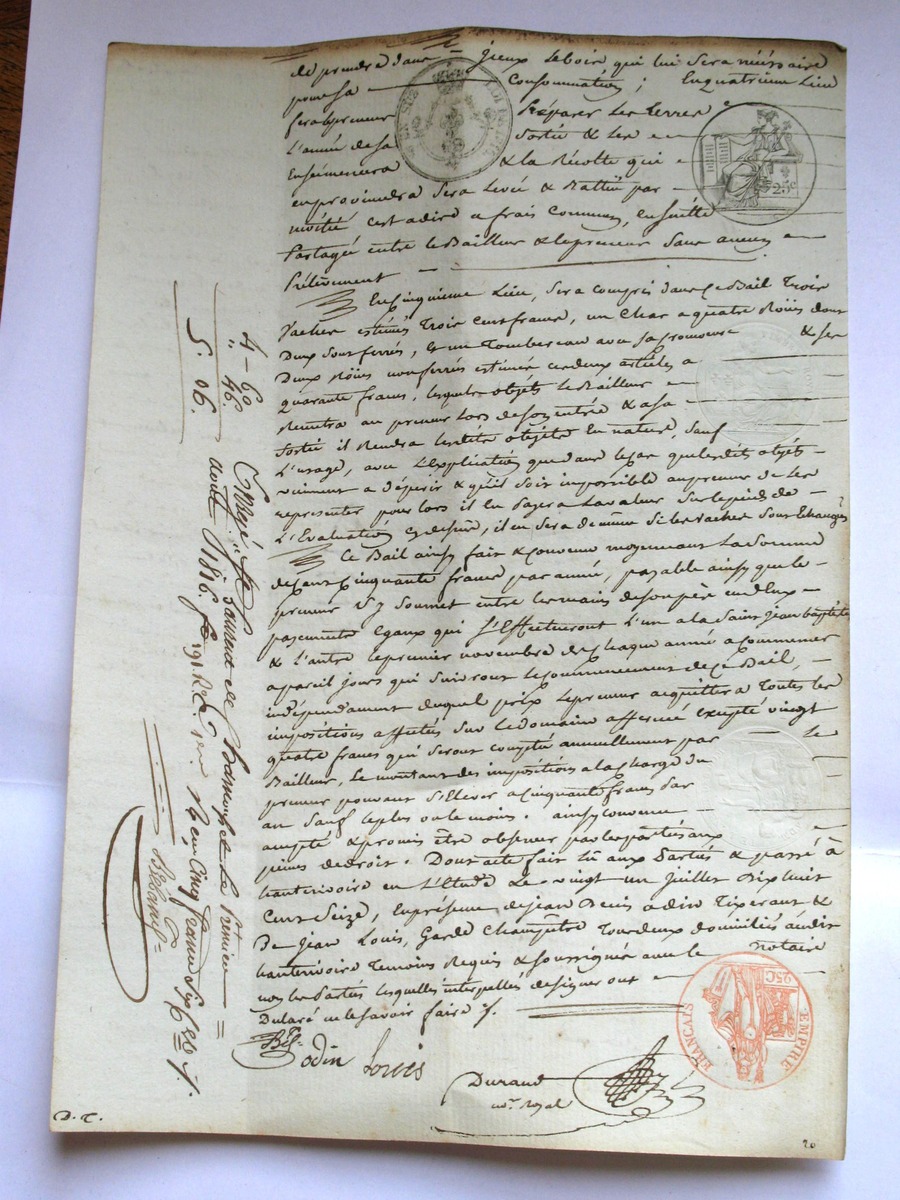 de prendre dans yceux le bois qui lui sera nécéssaire
pour sa Consommation; En quatrieme Lieu
sera le preneur Préparer Les Terres
L'année de sa Sortie & Les
Ensémencera & la Récolte qui
en proviendra sera Levée & Battüe par
moitié c'est adire a frais Communs, ensuitte
Partagée entre le Bailleur & le preneur Sans aucun
Prélévement
En Cinquieme Lieu, Sera Compris dans Ce Bail Trois
Vaches estimées Trois Cent francs, un Char a quatre Roües dont
Deux Sont ferrés, Et un Tombereau avec Sa & ses
Deux Roües non ferrés estimée ces deux articles a
quarante francs, lesquels objets le Bailleur
Remettra au preneur Lors de son entrée & a sa
Sortie il Rendra lesdits objets En nature, Sauf
L'usage, avec L'Explication que dans le cas que lesdits objets
vinssent a dépérir & qu'il soit impossible au preneur de les
représenter pour lors il En Payera La valeur Sur le pied de
L'Evaluation Cydessus, il en Sera de même Si les vaches Sont Echangées
Ce Bail ainsy fait & Convenu moyennant La Somme
de Cent Cinquante francs par année, payable ainsy que le
preneur S'y Soumet entre les mains de son père en deux
payements Egaux qui S'Effectueront L'un a la Saint Jean baptiste
& L'autre le premier novembre de Chaque année a Commencer
a pareil jours qui Suivront le Commencement de Ce Bail,
indépendament duquel prix le preneur acquittera Toutes les
impositions affectés Sur le domaine affermé excepté vingt
quatre francs qui Seront Compté annuellement par le
Bailleur, Le montant des impositions a la charge du
preneur pouvant S'Elever a Cinquante francs par
an Sauf le plus ou le moins. ainsy Convenu
accepté & promis être observer par les parties aux
peines de droit. Dont acte fait Lû aux Parties & passé à
hauterivoire en L'Etude Le vingt un Juillet Dix huit
Cent Seize, En présence de Jean Benis odin Tixerant &
De Jean Louis, Garde Champêtre Tous deux domiciliés audit
hauterivoire Temoins Requis & Soussignés avec le notaire
non les Parties lesquelles interpellés de signer ont
Déclaré ne le Savoir faire
Bts. odin Louis
Durand
no.re Royal
D. T.
20
4 - 60
" 46.
5. 06.
août 1816. fo 191 Ro. Reçu Cinq francs Six
25c
EMPIRE FRANÇAIS
25C